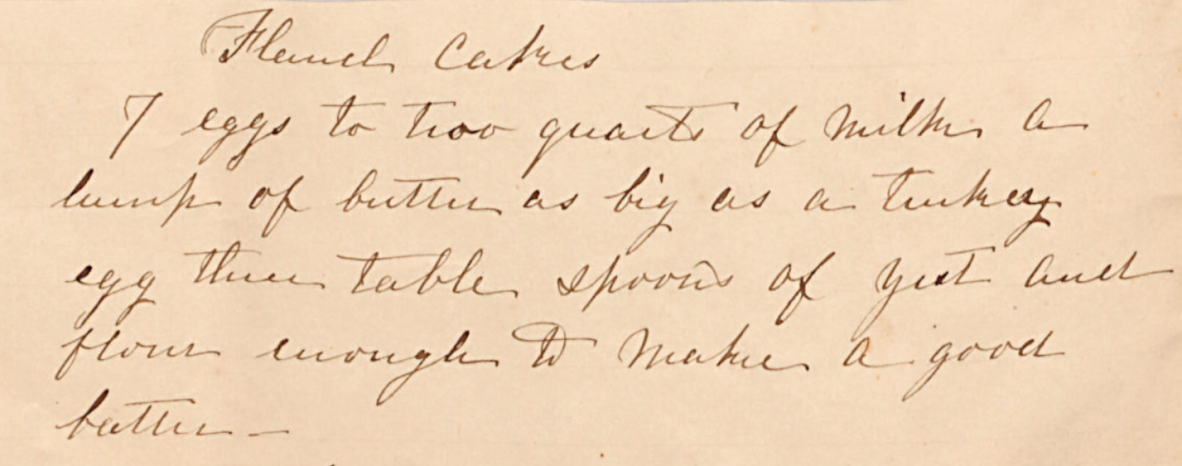 Flanel Cakes
7 eggs to two quarts of milk a
lump of butter as big as a turkey
egg three table spoons of yest and
flour enough to make a good
batter –